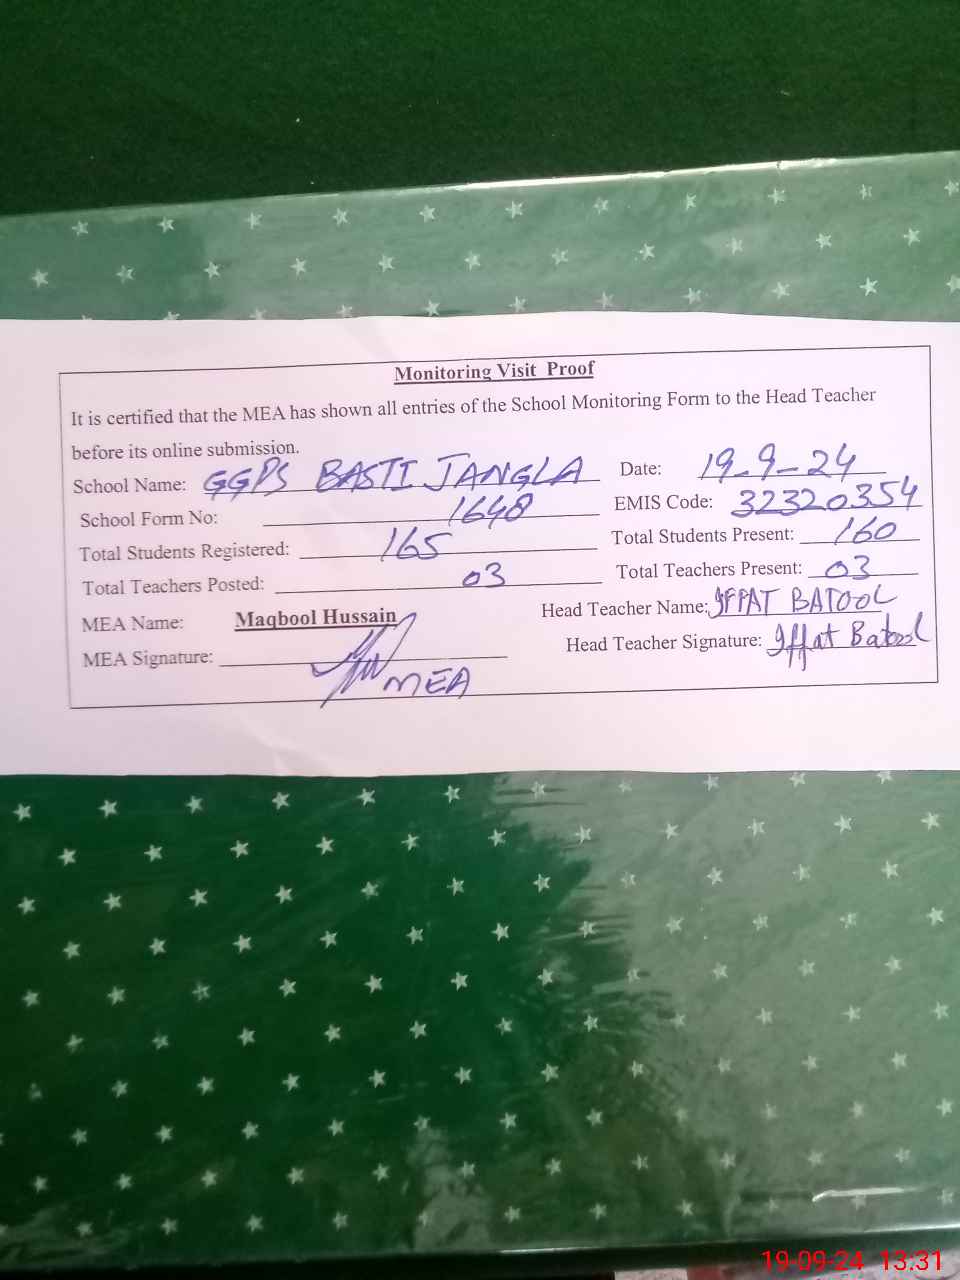 Monitoring Visit Proof
It is certified that the MEA has shown all entries of the School Monitoring Form to the Head Teacher
before its online submission.
School Name: GGPS BASTI JANGLA Date: 19-9-24
School Form No: 1648 EMIS Code: 32320354
Total Students Registered: 165 Total Students Present: 160
Total Teachers Posted: 03 Total Teachers Present: 03
MEA Name: Maqbool Hussain Head Teacher Name: IFFAT BATOOL
MEA Signature: MEA Head Teacher Signature: Iffat Batool
19-09-24 13:31